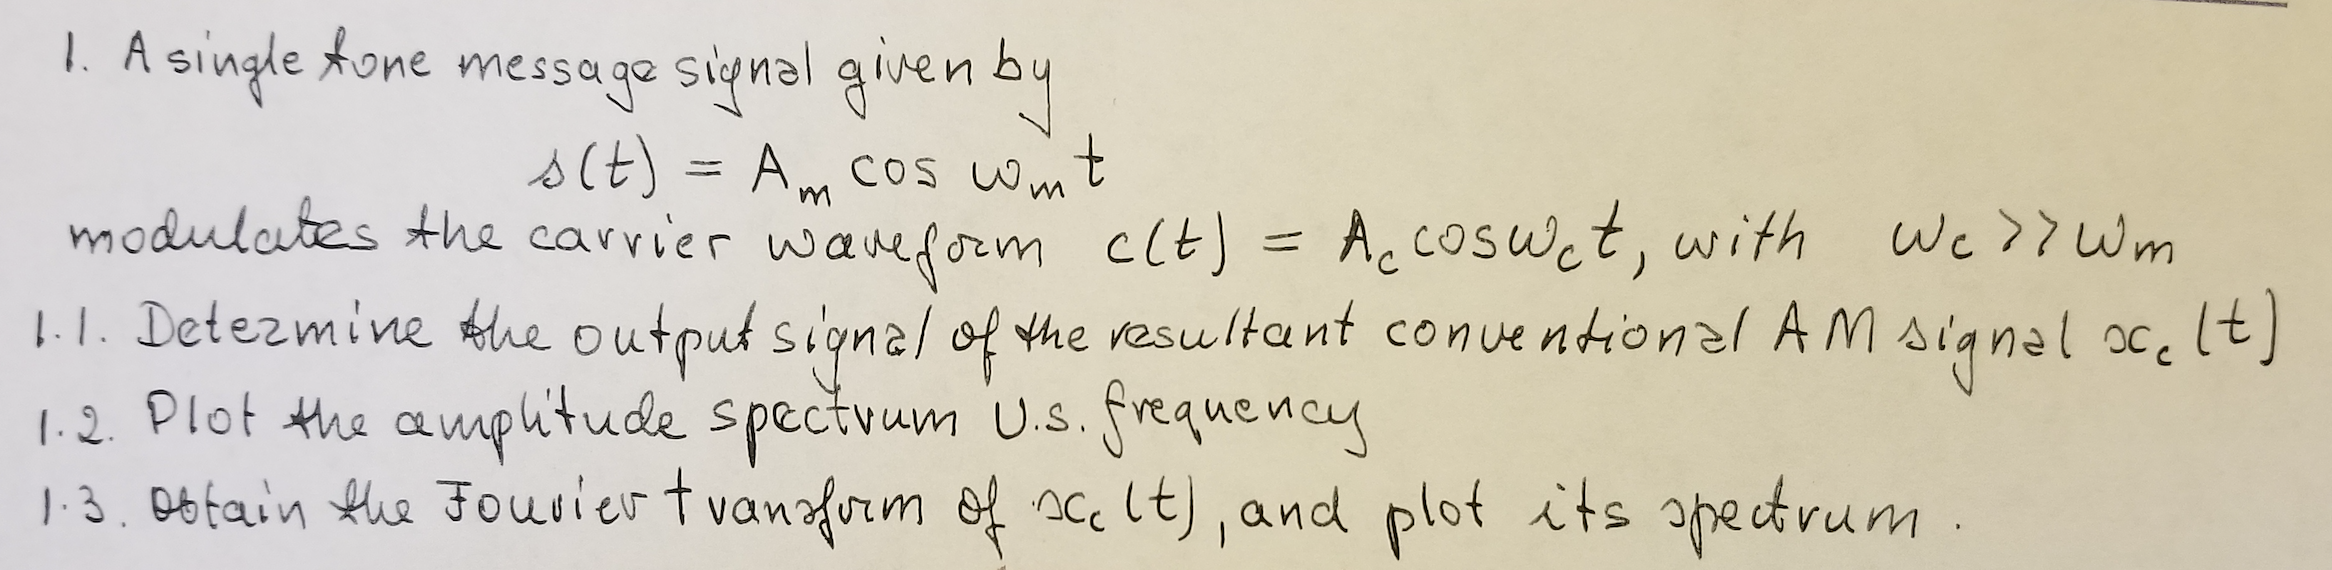 1. A single tone message signal given by
s(t) = A_m cos ω_m t
modulates the carrier waveform c(t) = A_c cos ω_c t, with ω_c >> ω_m
1.1. Determine the output signal of the resultant conventional AM signal x_c(t)
1.2. Plot the amplitude spectrum v.s. frequency
1.3. Obtain the Fourier transform of x_c(t), and plot its spectrum.